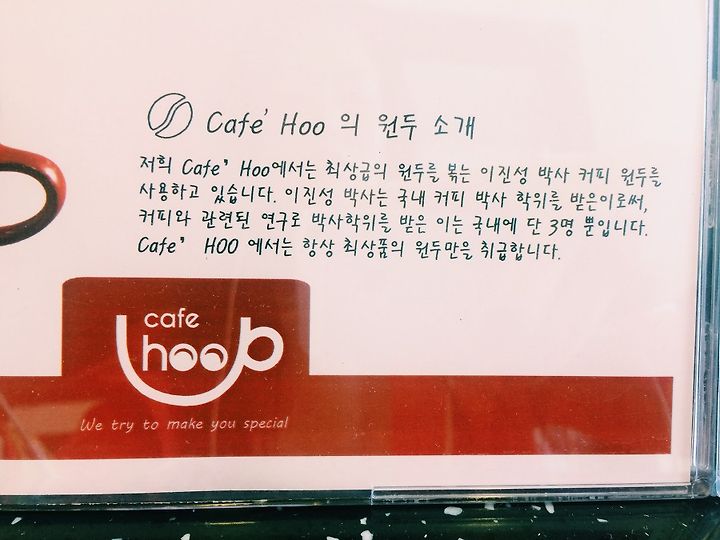 Cafe' Hoo 의 원두 소개
저희 Cafe' Hoo에서는 최상급의 원두를 볶는 이진성 박사 커피 원두를
사용하고 있습니다. 이진성 박사는 국내 커피 박사 학위를 받은이로써,
커피와 관련된 연구로 박사학위를 받은 이는 국내에 단 3명 뿐입니다.
Cafe' HOO 에서는 항상 최상품의 원두만을 취급합니다.
cafe
hoo
We try to make you special